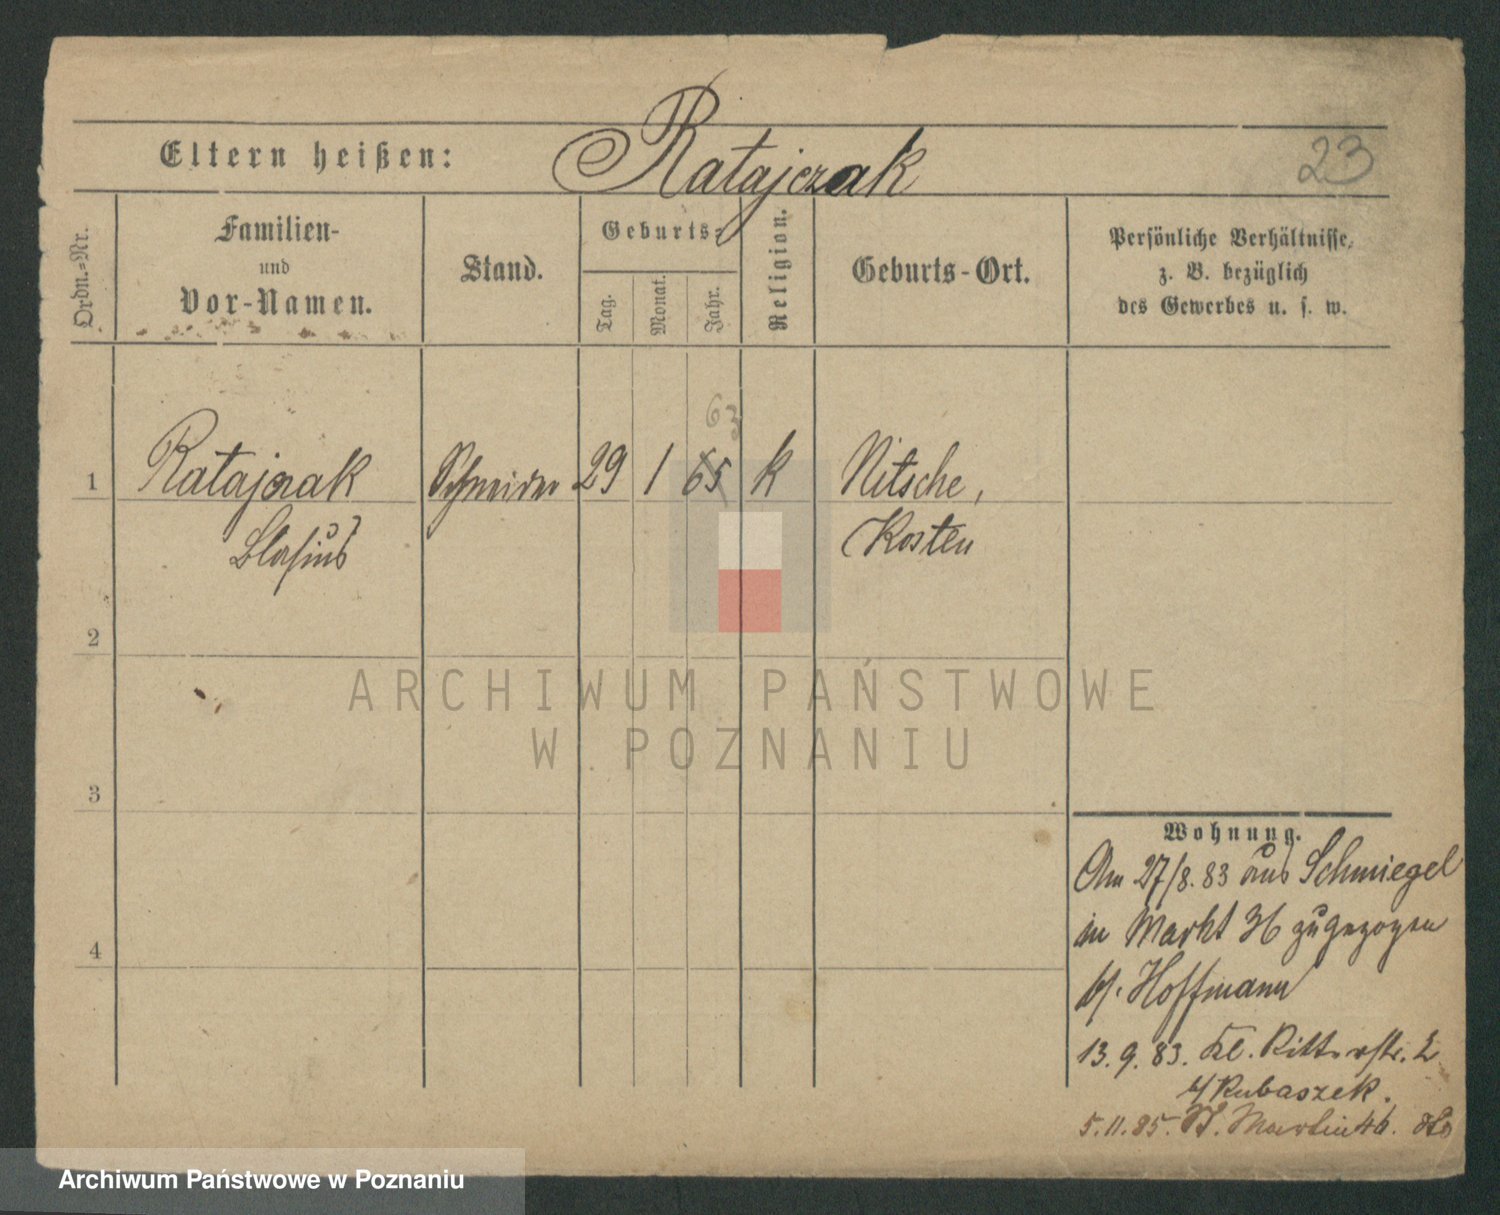 23
Eltern heißen: Ratajczak
Ordn.=Nr.
Familien-
und
Vor-Namen.
Stand.
Geburts-
Tag.
Monat.
Jahr.
Religion.
Geburts-Ort.
Persönliche Verhältnisse,
z. B. bezüglich
des Gewerbes u. s. w.
63
1 Ratajczak Schneider 29 1 65 k Nitsche,
Blasius Kosten
2
3
4
Wohnung.
Am 27/8. 83 aus Schmiegel
in Markt 36 zugezogen
b/. Hoffmann
13. 9. 83. Kl. Ritterstr. 2
b/ Rubaszek.
5. 11. 85. St. Martin 46.
ARCHIWUM PAŃSTWOWE
W POZNANIU
Archiwum Państwowe w Poznaniu